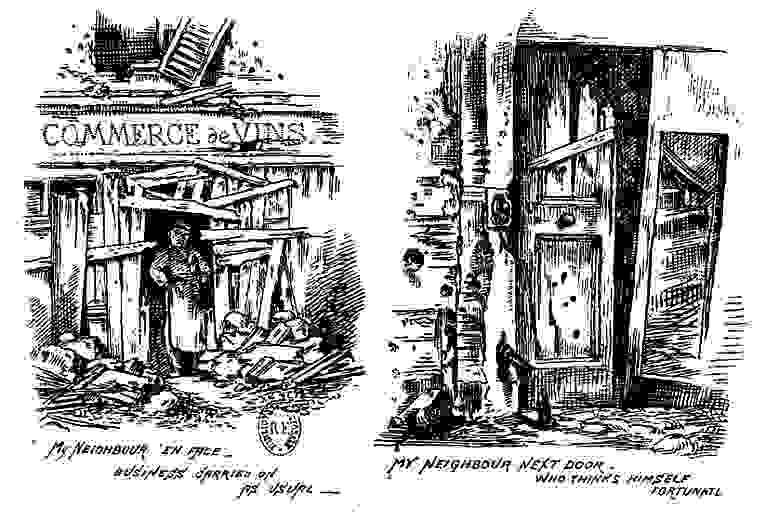 COMMERCE de VINS
MY NEIGHBOUR 'EN FACE -
BUSINESS CARRIED ON
AS USUAL —
MY NEIGHBOUR NEXT DOOR -
WHO THINKS HIMSELF